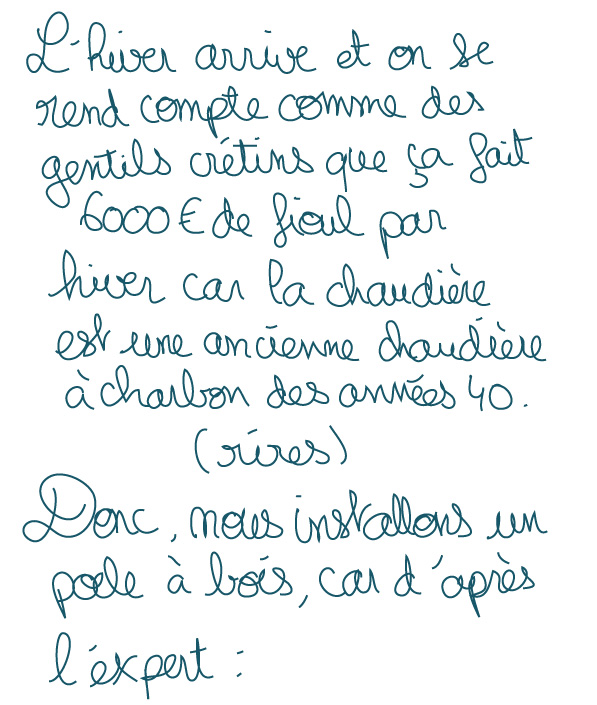 L'hiver arrive et on se
rend compte comme des
gentils crétins que ça fait
6000 € de fioul par
hiver car la chaudière
est une ancienne chaudière
à charbon des années 40.
(rires)
Donc, nous installons un
poele à bois, car d'après
l'expert :